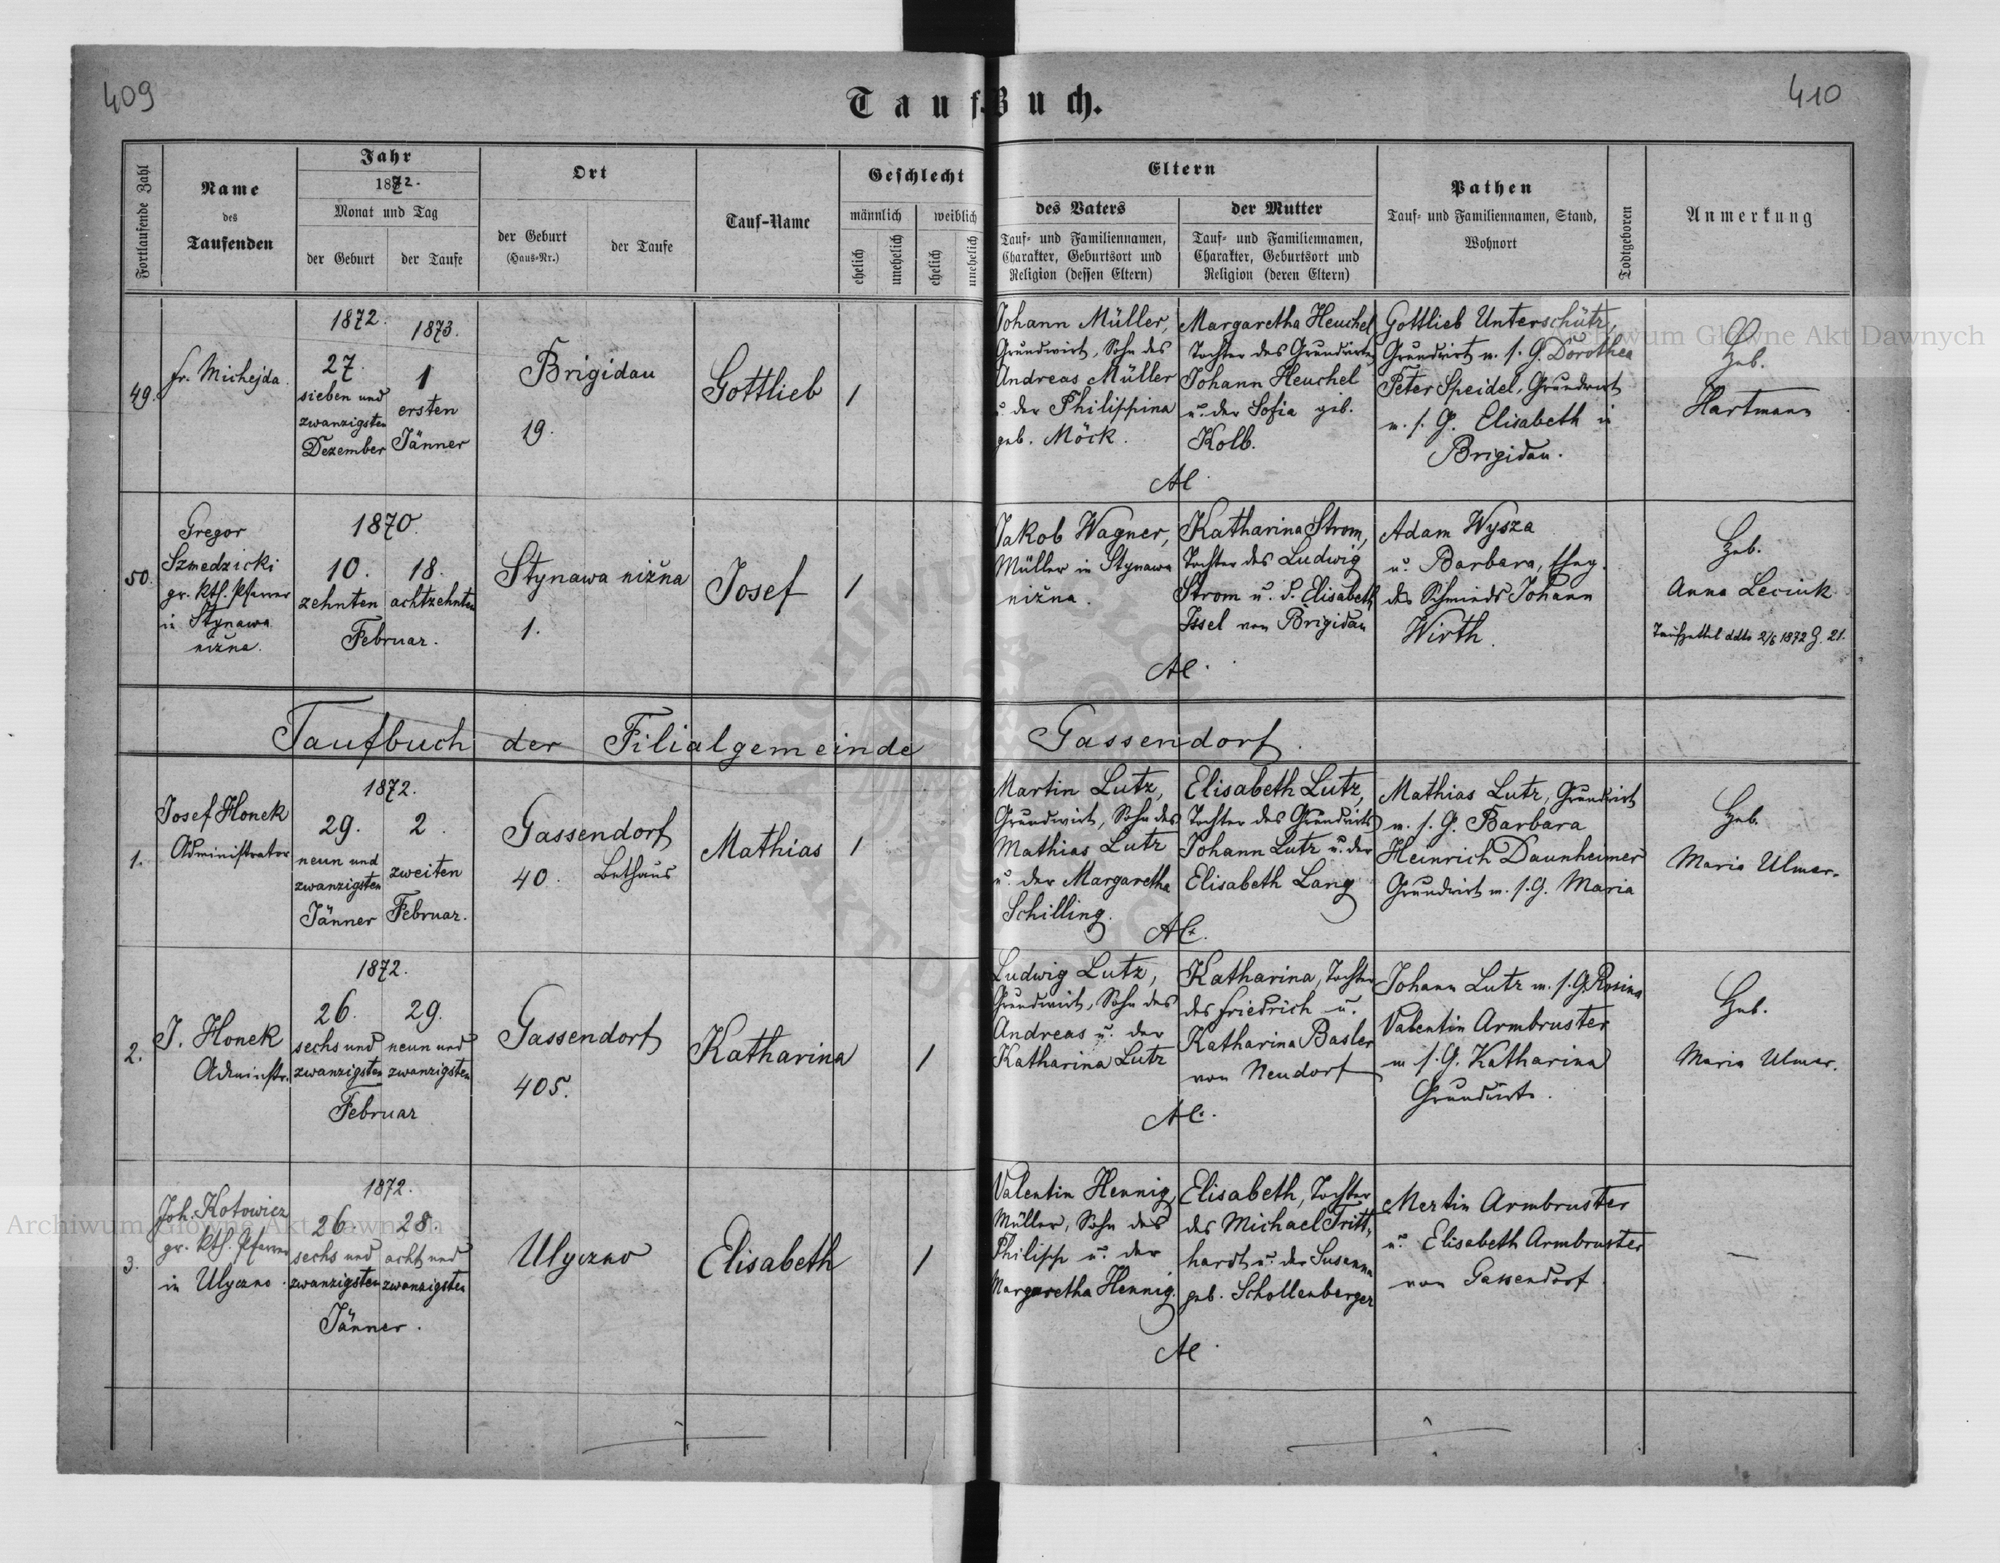 409
410
Tauf-Buch.
Fortlaufende Zahl
Name
des
Taufenden
Jahr
1872.
Monat und Tag
der Geburt
der Taufe
Ort
der Geburt
(Haus-Nr.)
der Taufe
Tauf-Name
Geschlecht
männlich
weiblich
ehelich
unehelich
ehelich
unehelich
Eltern
des Vaters
Tauf- und Familiennamen,
Charakter, Geburtsort und
Religion (dessen Eltern)
der Mutter
Tauf- und Familiennamen,
Charakter, Geburtsort und
Religion (deren Eltern)
Pathen
Tauf- und Familiennamen, Stand,
Wohnort
Todtgeboren
Anmerkung
49.
fr. Michejda.
1872.
27.
sieben und
zwanzigsten
Dezember
1873.
1
ersten
Jänner
Brigidau
19.
Gottlieb
1
Johann Müller,
Grundwirt, Sohn des
Andreas Müller
u. der Philippina
geb. Möck.
Margaretha Heuchel
Tochter des Grundwirten
Johann Heuchel
u. der Sofia geb.
Kolb.
AC.
Gottlieb Unterschütz,
Grundwirt m. s. G. Dorothea
Peter Speidel, Grundwirt
m. s. G. Elisabeth in
Brigidau.
Heb.
Hartmann
50.
Gregor
Szmedzicki
gr. kth. Pfarrer
in Stynawa
nižna.
1870.
10.
zehnten
18.
achtzehnten
Februar.
Stynawa nižna
1.
Josef
1
Jakob Wagner,
Müller in Stynawa
nižna.
Katharina Strom,
Tochter des Ludwig
Strom u. d. Elisabeth
Issel von Brigidau
AC.
Adam Wysza
u. Barbara, Eheg.
des Schmieds Johann
Wirth.
Heb.
Anna Leciuk
Taufzettel ddto 2/6 1872 Z. 21.
Taufbuch der Filialgemeinde Gassendorf.
1.
Josef Honek
Administrator
1872.
29.
neun und
zwanzigsten
Jänner
2.
zweiten
Februar.
Gassendorf
40.
Bethaus
Mathias
1
Martin Lutz,
Grundwirt, Sohn des
Mathias Lutz
u. der Margaretha
Schilling.
Elisabeth Lutz,
Tochter des Grundwirts
Johann Lutz u. der
Elisabeth Lang
AC.
Mathias Lutz, Grundwirt
m. s. G. Barbara
Heinrich Daunheimer
Grundwirt m. s. G. Maria
Heb.
Maria Ulmer.
2.
J. Honek
Administr.
1872.
26.
sechs und
zwanzigsten
29.
neun und
zwanzigsten
Februar
Gassendorf
405.
Katharina
1
Ludwig Lutz,
Grundwirt, Sohn des
Andreas u. der
Katharina Lutz
Katharina, Tochter
des Friedrich u.
Katharina Basler
von Neudorf
AC.
Johann Lutz m. s. G. Rosina
Valentin Armbruster
m s. G. Katharina
Grundwirte.
Heb.
Maria Ulmer.
3.
Joh. Kotowicz
gr. kth. Pfarrer
in Ulyczno.
1872.
26.
sechs und
zwanzigsten
28.
acht und
zwanzigsten
Jänner.
Ulyczno
Elisabeth
1
Valentin Hennig,
Müller, Sohn des
Philipp u. der
Margaretha Hennig.
Elisabeth, Tochter
des Michael Tritt-
hardt u. der Susanna
geb. Schollenberger
AC.
Martin Armbruster
u. Elisabeth Armbruster
von Gassendorf.
—
Archiwum Główne Akt Dawnych
Archiwum Główne Akt Dawnych